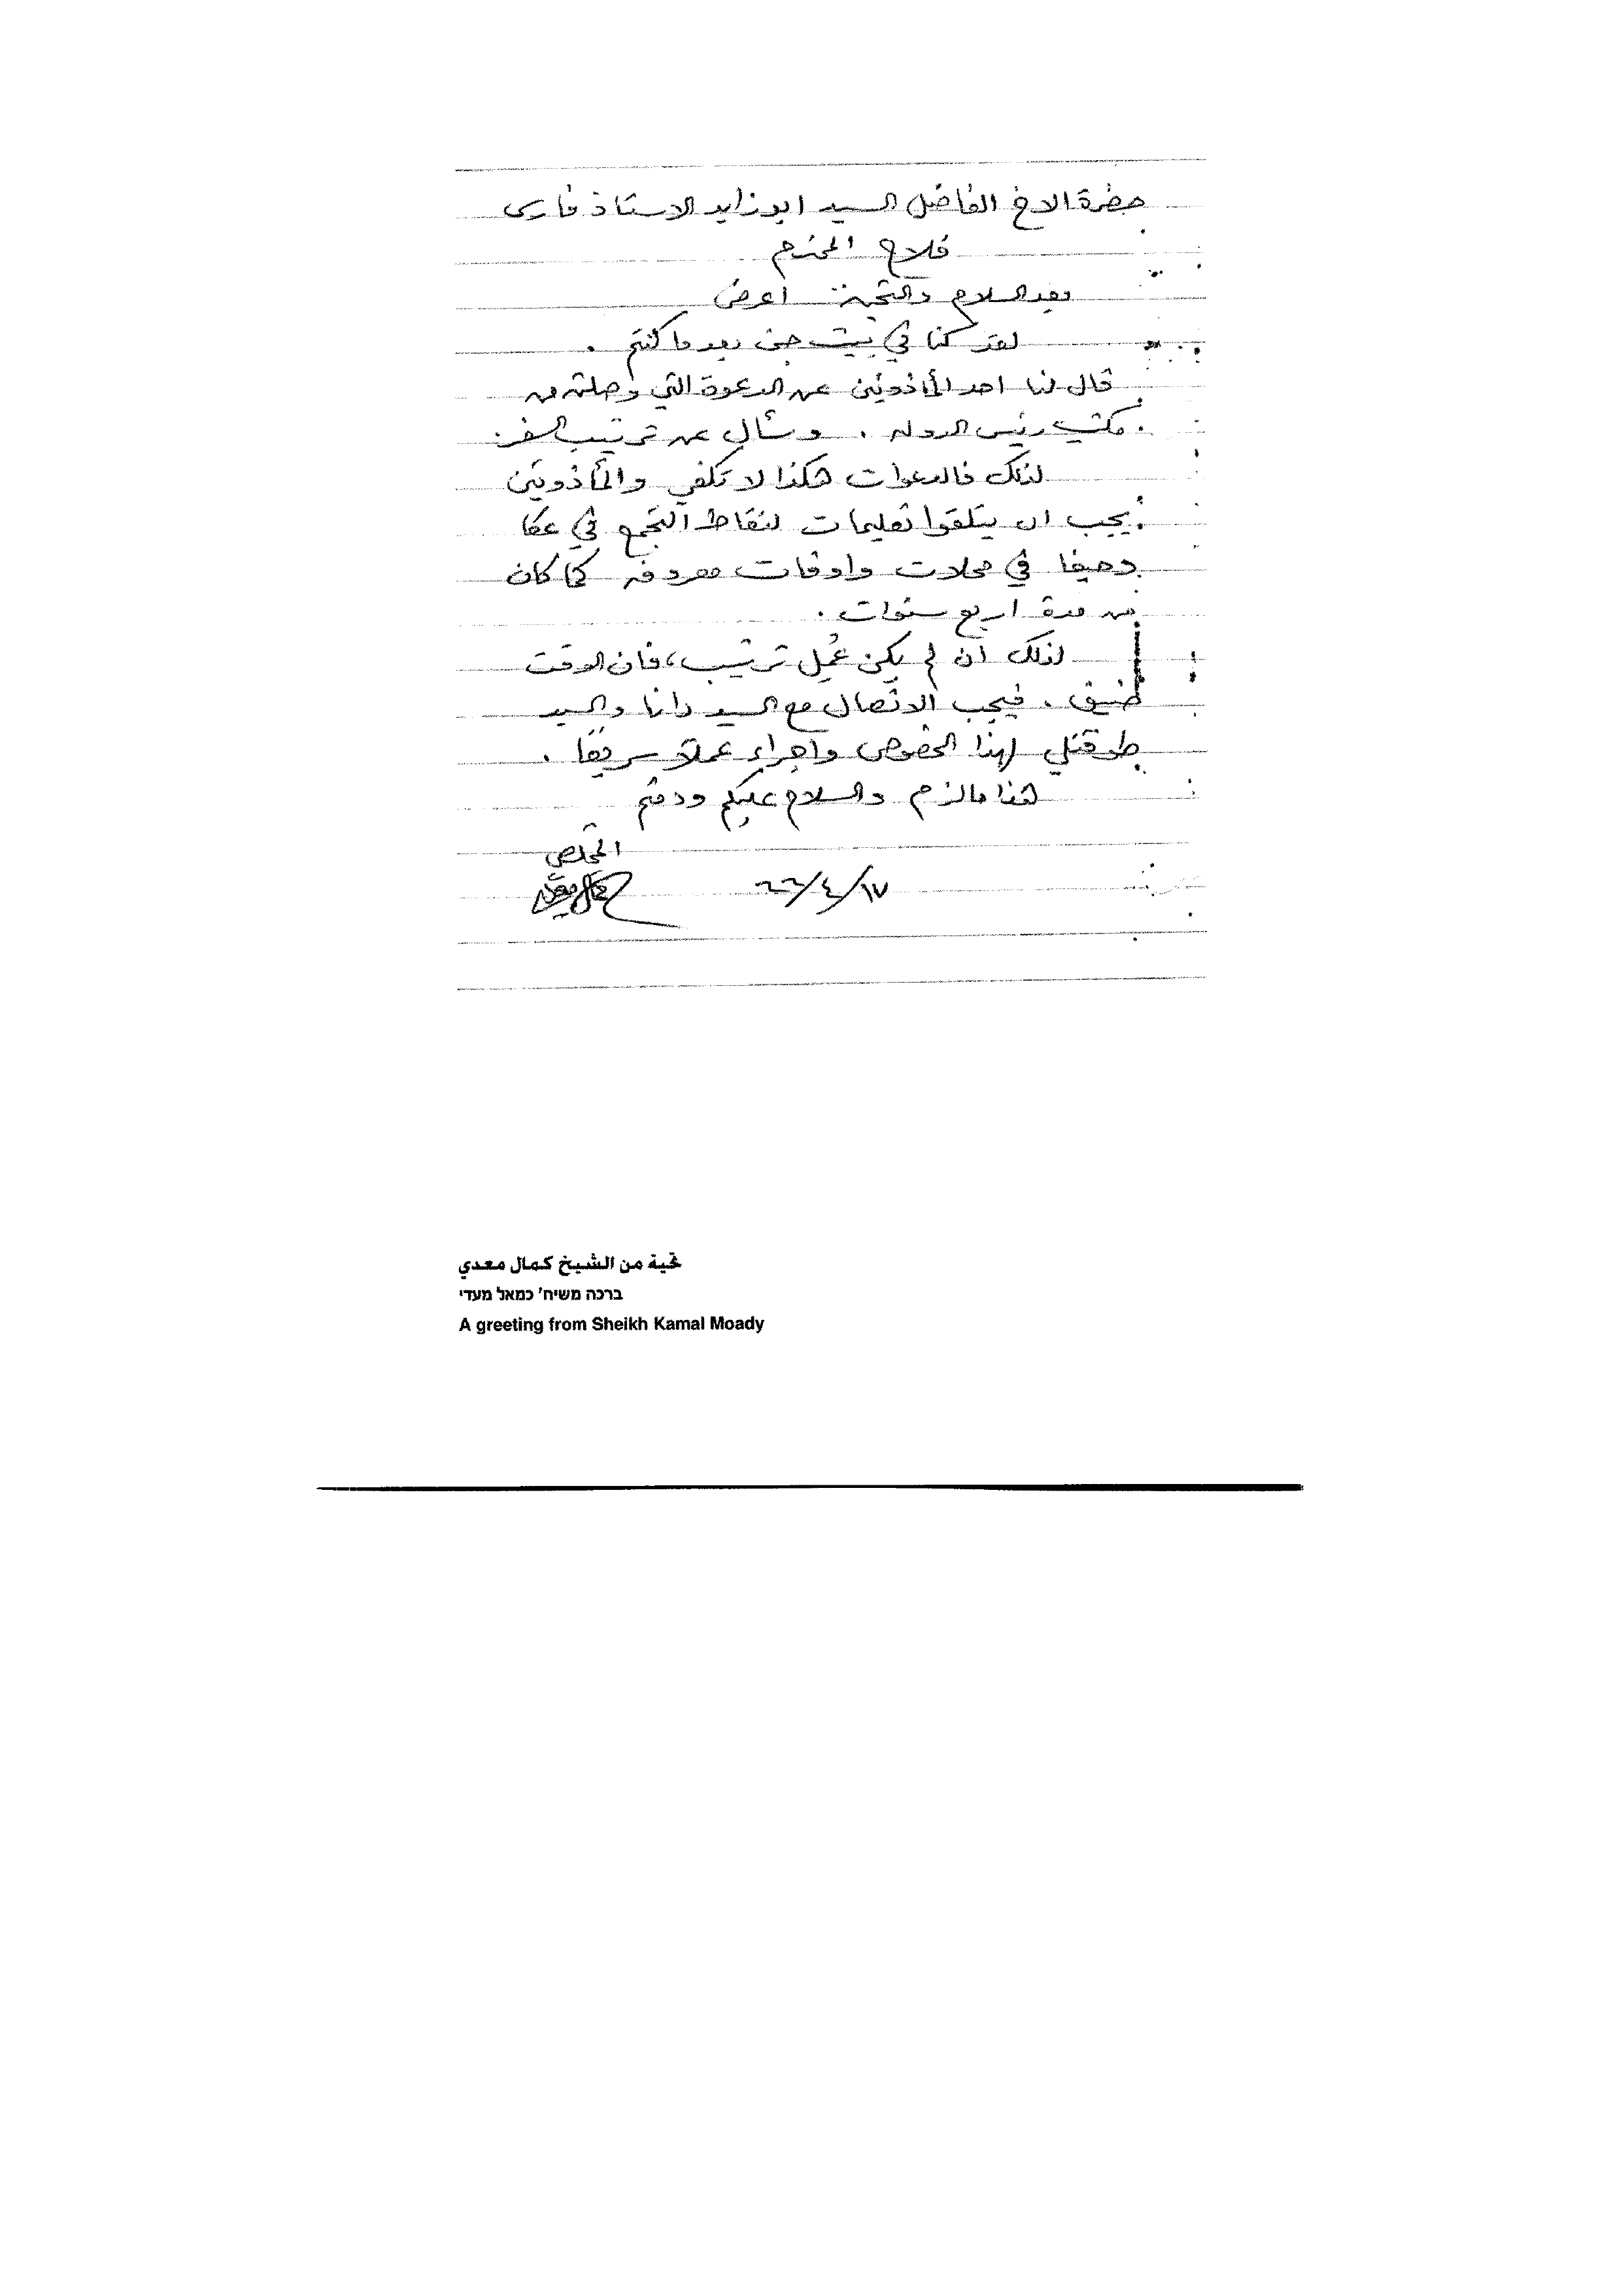 حضرة الاخ الفاضل السيد ابو زايد الاستاذ فارس
فلاح المحترم
بعد السلام والتحية اعرض
لقد كنا في بيت جن بعد ما كنتم .
قال لنا احد المأذونين عن الدعوة التي وصلته من
مكتب رئيس الدوله . وسأل عن ترتيب السفر .
لذلك فالدعوات هكذا لا تكفي والمأذونين
يجب ان يتلقوا تعليمات لنقاط التجمع في عكا
وحيفا في محلات واوقات معروفه كما كان
من مدة اربع سنوات .
لذلك ان لم يكن عُمل ترتيب، فان الوقت
ضيق . فيجب الاتصال مع السيد دانا والسيد
لهذا الخصوص واجراء عملاً سريعًا .
هذا ما لزم والسلام عليكم ودمتم
المخلص
١٧/٤/٦٦
تحية من الشيخ كمال معدي
ברכה משיח' כמאל מעדי
A greeting from Sheikh Kamal Moady